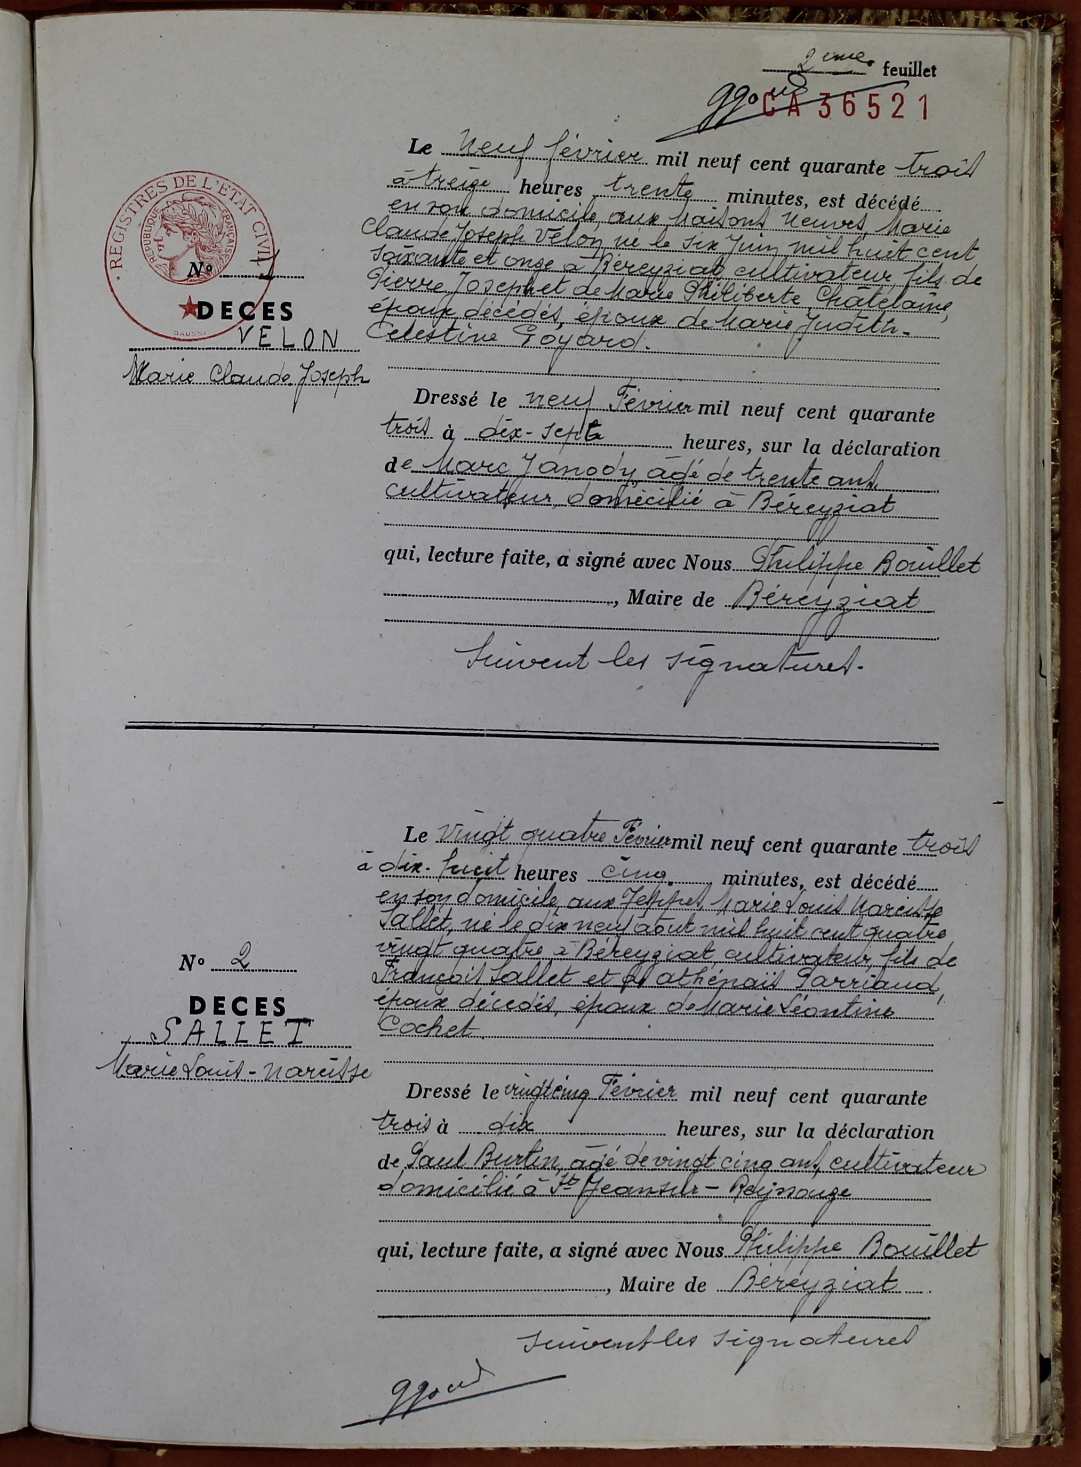 2ème feuillet
CA 36521
Le Neuf février mil neuf cent quarante trois
à treize heures trente minutes, est décédé
en son domicile, aux Maisons Neuves, Marie
Claude Joseph Velon, né le six Juin mil huit cent
soixante et onze à Béreyziat, cultivateur, fils de
Pierre Joseph et de Marie Philiberte Châtelaine,
époux décédés, époux de Marie Judith-
Celestine Goyard.
REGISTRES DE L'ETAT CIVIL
REPUBLIQUE FRANÇAISE
No 1
DECES
VELON
Marie Claude Joseph
Dressé le neuf Février mil neuf cent quarante
trois à dix-sept heures, sur la déclaration
de Marc Janody âgé de trente ans,
cultivateur, domicilié à Béreyziat
qui, lecture faite, a signé avec Nous Philippe Bouillet
, Maire de Béreyziat
Suivent les signatures.
Le Vingt quatre Février mil neuf cent quarante trois
à dix-huit heures cinq minutes, est décédé
en son domicile, aux Marie Louis Narcisse
Sallet, né le dix neuf août mil huit cent quatre
vingt quatre, à Béreyziat, cultivateur, fils de
François Sallet et athénaïs Parriaud,
époux décédés, époux de Marie Léontine
Cochet.
No 2
DECES
SALLET
Marie Louis-Narcisse
Dressé le vingt cinq Février mil neuf cent quarante
trois à dix heures, sur la déclaration
de Paul Burtin, âgé de vingt cinq ans, cultivateur
domicilié à St Jean sur-Reyssouze
qui, lecture faite, a signé avec Nous Philippe Bouillet
, Maire de Béreyziat
suivent les signatures